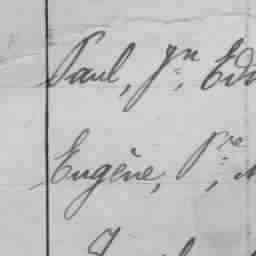 Paul, Jn, Edo
Eugène, Pre,